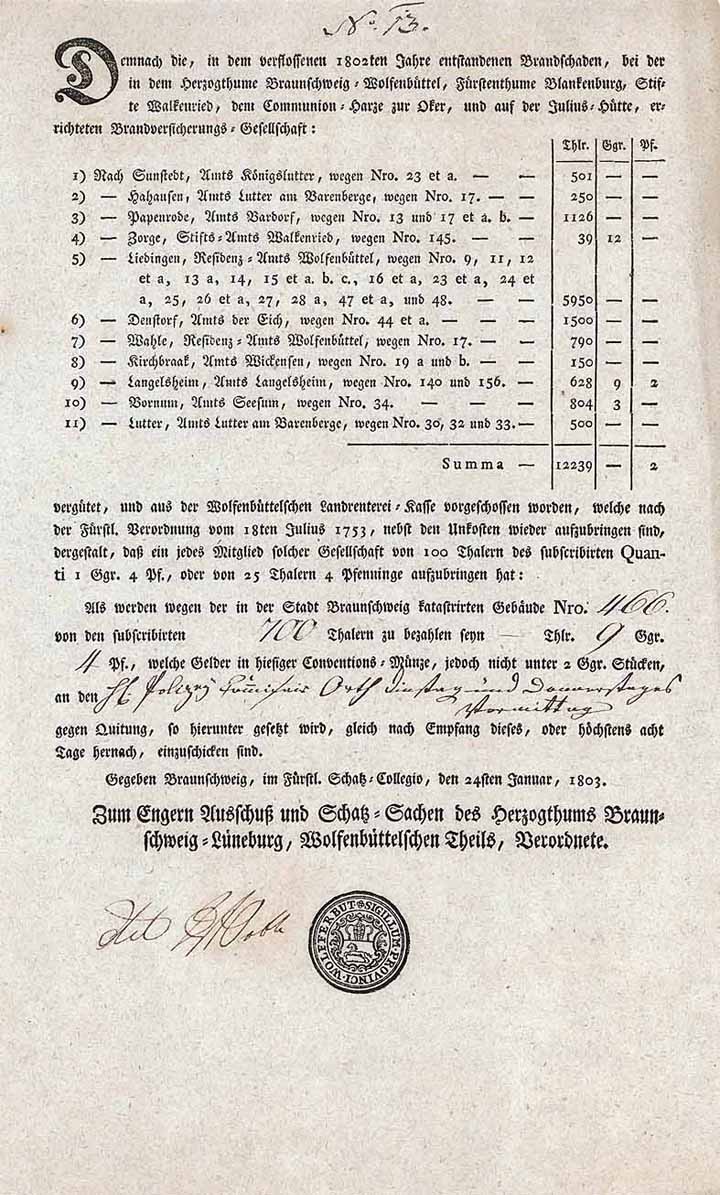 No. 13.
Demnach die, in dem verflossenen 1802ten Jahre entstandenen Brandschaden, bei der
in dem Herzogthume Braunschweig-Wolfenbüttel, Fürstenthume Blankenburg, Stif-
te Walkenried, dem Communion-Harze zur Oker, und auf der Julius-Hütte, er-
richteten Brandversicherungs-Gesellschaft:
Thlr. Ggr. Pf.
1) Nach Sunstedt, Amts Königslutter, wegen Nro. 23 et a. — — 501 — —
2) — Hahausen, Amts Lutter am Barenberge, wegen Nro. 17. — — 250 — —
3) — Papenrode, Amts Bardorf, wegen Nro. 13 und 17 et a. b. — 1126 — —
4) — Zorge, Stifts-Amts Walkenried, wegen Nro. 145. — — 39 12 —
5) — Liedingen, Residenz-Amts Wolfenbüttel, wegen Nro. 9, 11, 12
et a, 13 a, 14, 15 et a. b. c., 16 et a, 23 et a, 24 et
a, 25, 26 et a, 27, 28 a, 47 et a, und 48. — — 5950 — —
6) — Denstorf, Amts der Eich, wegen Nro. 44 et a. — — 1500 — —
7) — Wahle, Residenz-Amts Wolfenbüttel, wegen Nro. 17. — — 790 — —
8) — Kirchbraak, Amts Wickensen, wegen Nro. 19 a und b. — — 150 — —
9) — Langelsheim, Amts Langelsheim, wegen Nro. 140 und 156. — 628 9 2
10) — Bornum, Amts Seesum, wegen Nro. 34. — — — 804 3 —
11) — Lutter, Amts Lutter am Barenberge, wegen Nro. 30, 32 und 33. — 500 — —
Summa — 12239 — 2
vergütet, und aus der Wolfenbüttelschen Landrenterei-Kasse vorgeschossen worden, welche nach
der Fürstl. Verordnung vom 18ten Julius 1753, nebst den Unkosten wieder aufzubringen sind,
dergestalt, daß ein jedes Mitglied solcher Gesellschaft von 100 Thalern des subscribirten Quan-
ti 1 Ggr. 4 Pf., oder von 25 Thalern 4 Pfenninge aufzubringen hat:
Als werden wegen der in der Stadt Braunschweig katastrirten Gebäude Nro. 466.
von den subscribirten 700 Thalern zu bezahlen seyn — Thlr. 9 Ggr.
4 Pf., welche Gelder in hiesiger Conventions-Münze, jedoch nicht unter 2 Ggr. Stücken,
an den H. Polizey Commissair Orth Dinstag und Donnerstages
Vormittag
gegen Quitung, so hierunter gesetzt wird, gleich nach Empfang dieses, oder höchstens acht
Tage hernach, einzuschicken sind.
Gegeben Braunschweig, im Fürstl. Schatz-Collegio, den 24sten Januar, 1803.
Zum Engern Ausschuß und Schatz-Sachen des Herzogthums Braun-
schweig-Lüneburg, Wolfenbüttelschen Theils, Verordnete.
SIGILLUM PROVINCI WOLFFERBUT